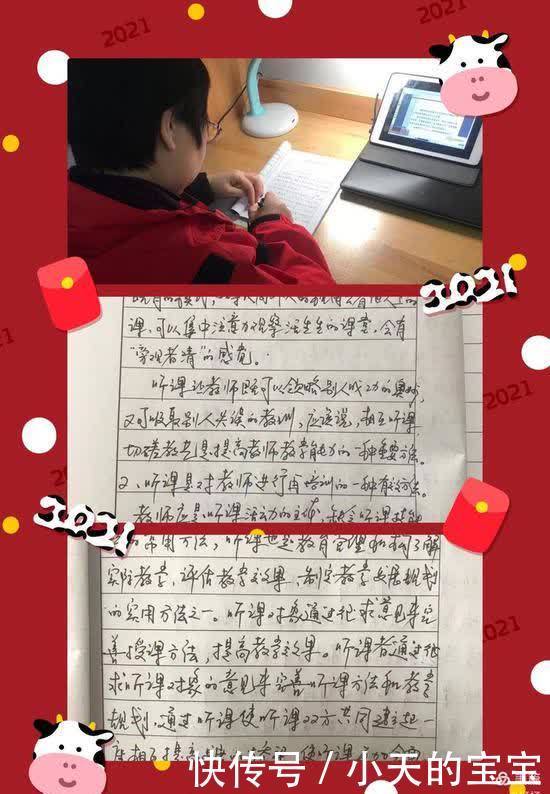 2021
2021
2021
课,可以集中注意力观察活生生的课堂,会有
“旁观者清”的感觉。
听课让教师既可以领略别人成功的奥妙,
又可吸取别人失误的教训,应该说,相互听课
切磋教艺是提高教师教学能力的一种重要方法。
2、听课是对教师进行再培训的一种有效方法。
教师应是听课活动的主体,
2021
2021
2021
常用方法,听课也是教育管理机构了解
实际教学,评估教学效果、制定教学发展规划
的实用方法之一。听课对象通过征求意见来完
善授课方法,提高教学效果。听课者通过征
求听课对象的意见来完善听课方法和教学
规划,通过听课使听课双方共同建立起一
座相互提高
快传号 / 小天的宝宝